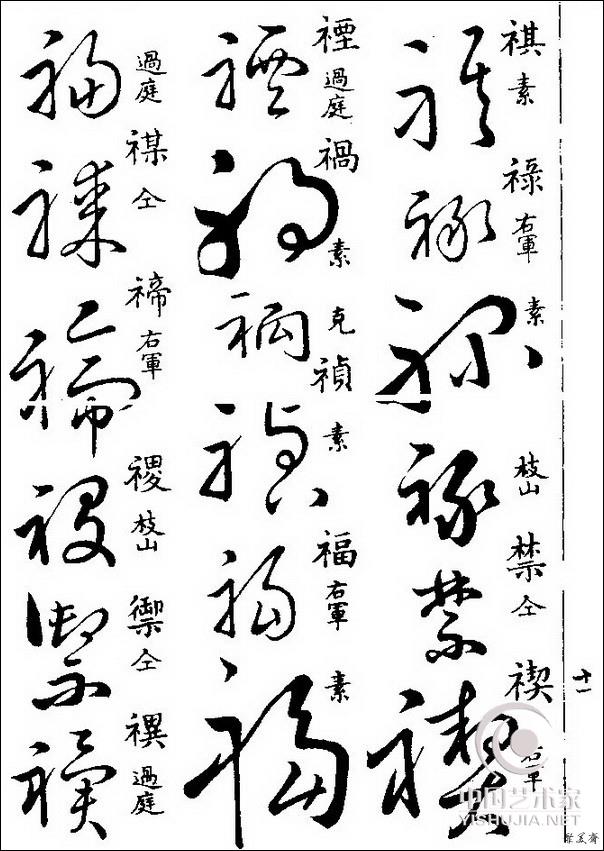 祺 素
祿 右軍
素
枝山
禁 仝
禊 右軍
禋 過庭
禍 素
克
禎 素
福 右軍
素
過庭
禖 仝
禘 右軍
禝 枝山
禦 仝
禩 過庭
十一
中国艺术家
YISHUJIA.NET